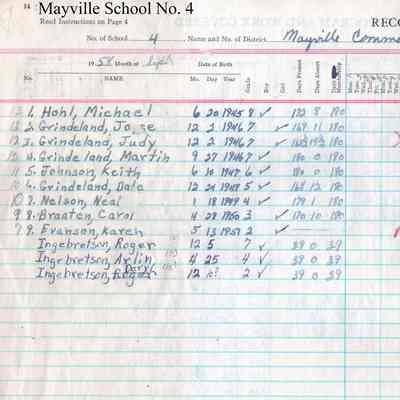 14 Mayville School No. 4
Read Instructions on Page 4
RECO
No. of School 4, Name and No. of District. Mayville Commo
1958 Month of Sept Date of Birth
No. NAME Mo. Day Year Grade Boy Girl Days Present Days Absent Mon. Tues. Wed.
1. Hohl, Michael 6 20 1945 8 ✓ 172 8 180
2. Grindeland, 12 2 1946 7 ✓ 169 11 180
3. Grindeland, Judy 12 2 1946 7 ✓ 180
4. Grindeland, Martin 9 27 1946 7 ✓ 180 0 180
5. Johnson, Keith 6 10 1947 6 ✓ 180 0 180
6. Grindeland, Dale 12 24 1948 5 ✓ 168 12 180
10 7. Nelson, Neal 1 18 1949 4 ✓ 179 1 180
9 8. Braaten, Carol 4 28 1950 3 ✓ 170 10 180
7 9. Evanson, Karen 5 13 1951 2 ✓
Ingebretson, Roger 12 5 7 ✓ 39 0 39
Ingebretson, Arlin 4 25 4 ✓ 39 0 39
Ingebretson, Daryl 12 2 ✓ 39 0 39